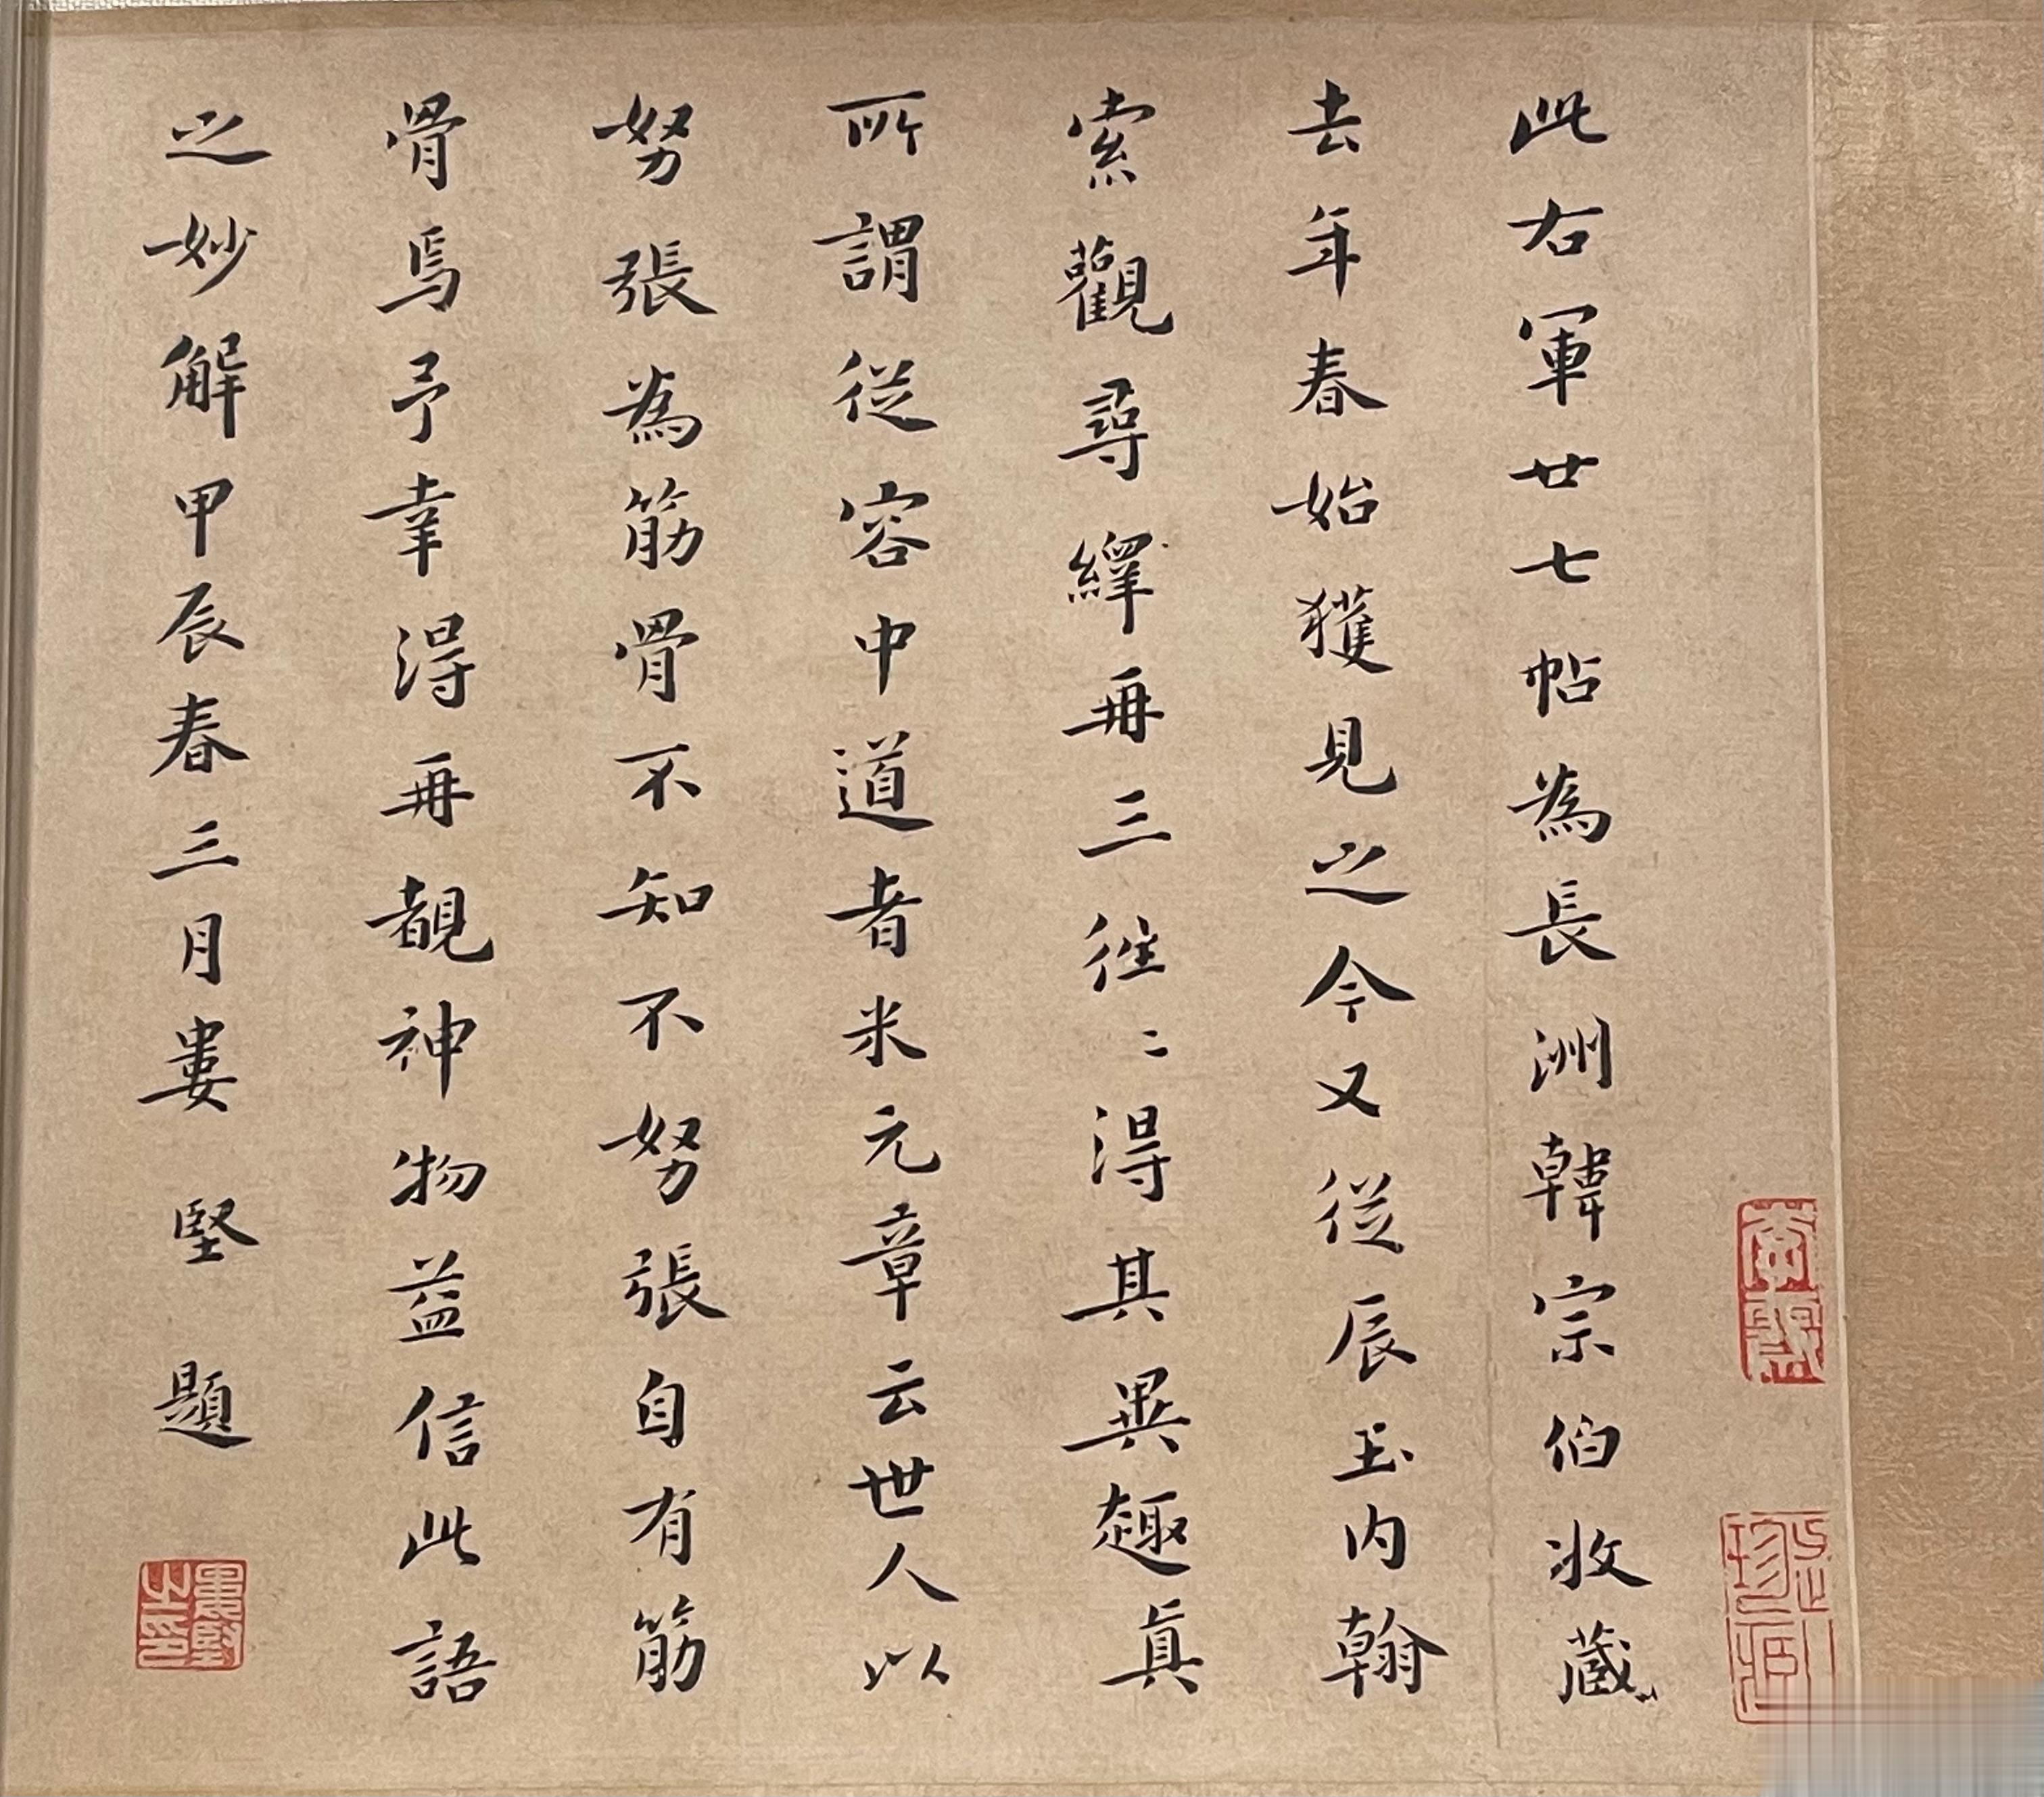 此右軍廿七帖為長洲韓宗伯收藏
去年春始獲見之今又從辰玉內翰
索觀尋繹再三往〻得其異趣真
所謂從容中道者米元章云世人以
努張為筋骨不知不努張自有筋
骨焉予幸得再覩神物益信此語
之妙解甲辰春三月婁堅題
婁堅之印